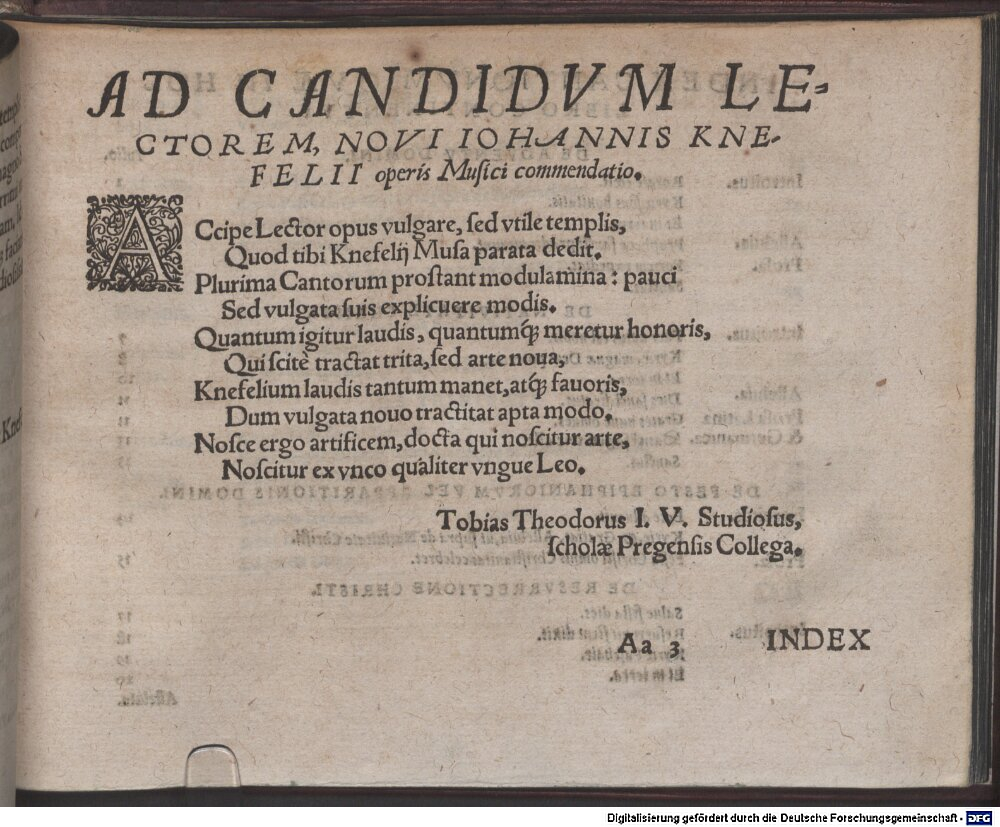 AD CANDIDVM LE-
CTOREM, NOVI IOHANNIS KNE-
FELII operis Musici commendatio.
ACcipe Lector opus vulgare, sed vtile templis,
Quod tibi Knefelij Musa parata dedit.
Plurima Cantorum prostant modulamina: pauci
Sed vulgata suis explicuere modis.
Quantum igitur laudis, quantumq́; meretur honoris,
Qui scitè tractat trita, sed arte noua,
Knefelium laudis tantum manet, atq́; fauoris,
Dum vulgata nouo tractitat apta modo.
Nosce ergo artificem, docta qui noscitur arte,
Noscitur ex vnco qualiter vngue Leo.
Tobias Theodorus I. V. Studiosus,
scholæ Pregensis Collega.
Aa 3 INDEX
Digitalisierung gefördert durch die Deutsche Forschungsgemeinschaft - DFG